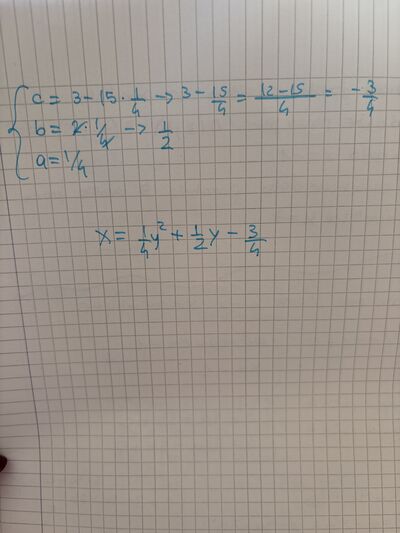 c = 3 - 15 · 1/4 → 3 - 15/4 = (12-15)/4 = -3/4
b = 2 · 1/4 → 1/2
a = 1/4
x = 1/4 y² + 1/2 y - 3/4